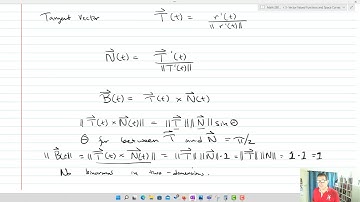 Tangent vector T⃗(t) = r'(t) / ‖r'(t)‖
N⃗(t) = T⃗'(t) / ‖T'(t)‖
B⃗(t) = T⃗(t) × N⃗(t)
‖T⃗(t) × N⃗(t)‖ = ‖T⃗‖ ‖N⃗‖ sin θ
θ for between T⃗ and N⃗ = π/2
‖B⃗(t)‖ = ‖T⃗(t) × N⃗(t)‖ = ‖T⃗‖ ‖N⃗‖ · 1 = ‖T⃗‖ ‖N‖ = 1 · 1 = 1
No binormal in two-dimensions.